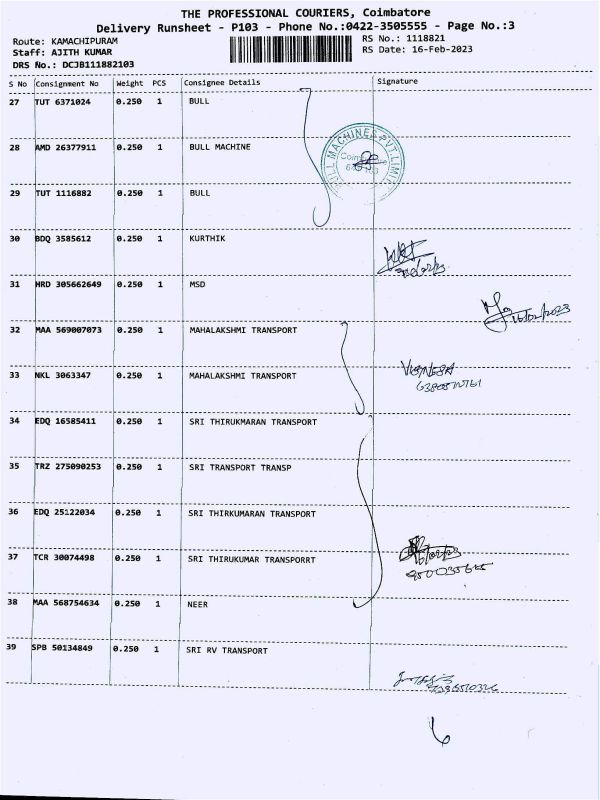 THE PROFESSIONAL COURIERS, Coimbatore
Delivery Runsheet - P103 - Phone No.:0422-3505555 - Page No.:3
Route: KAMACHIPURAM RS No.: 1118821
Staff: AJITH KUMAR RS Date: 16-Feb-2023
DRS No.: DCJB111882103
S No Consignment No Weight PCS Consignee Details Signature
27 TUT 6371024 0.250 1 BULL
28 AMD 26377911 0.250 1 BULL MACHINE
BULL MACHINES PVT.LIMI
29 TUT 1116882 0.250 1 BULL
30 BDQ 3585612 0.250 1 KURTHIK
31 HRD 305662649 0.250 1 MSD
16/02/2023
32 MAA 569007073 0.250 1 MAHALAKSHMI TRANSPORT
33 NKL 3063347 0.250 1 MAHALAKSHMI TRANSPORT
34 EDQ 16585411 0.250 1 SRI THIRUKMARAN TRANSPORT
35 TRZ 275090253 0.250 1 SRI TRANSPORT TRANSP
36 EDQ 25122034 0.250 1 SRI THIRKUMARAN TRANSPORT
37 TCR 30074498 0.250 1 SRI THIRUKUMAR TRANSPORRT
38 MAA 568754634 0.250 1 NEER
39 SPB 50134849 0.250 1 SRI RV TRANSPORT
6